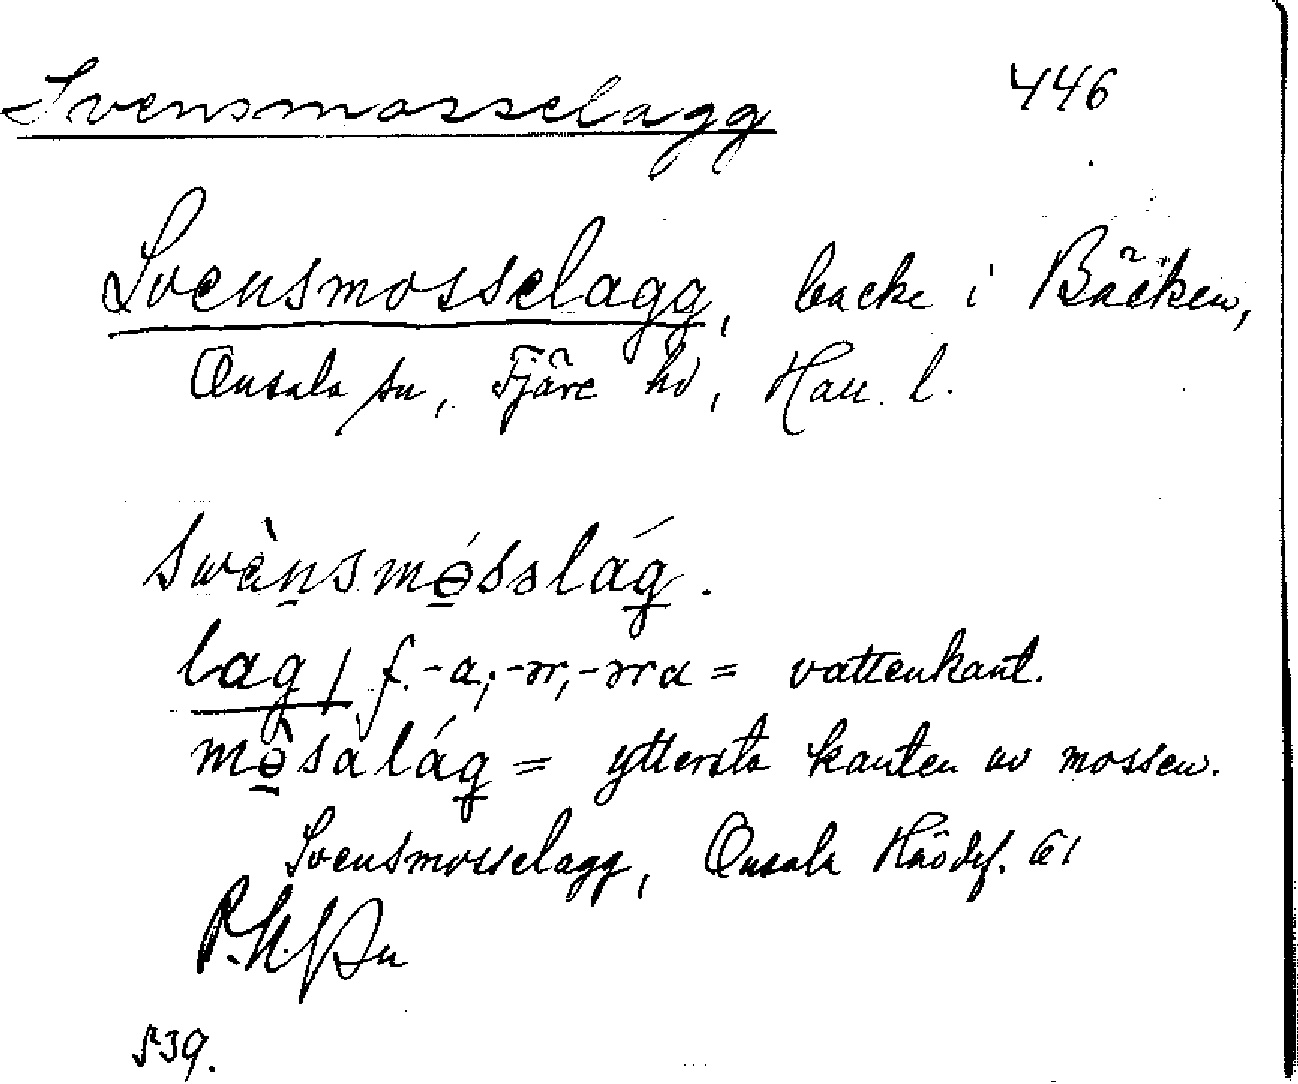 Svensmosselagg 446
Svensmosselagg, backe i Bäcken,
Onsala sn, Fjäre hd, Hall. l.
swènsmósslág.
lag, f. -a; -ər, -əra = vattenkant.
mòsalág = yttersta kanten av mossen.
Svensmosselagg, Onsala
539.